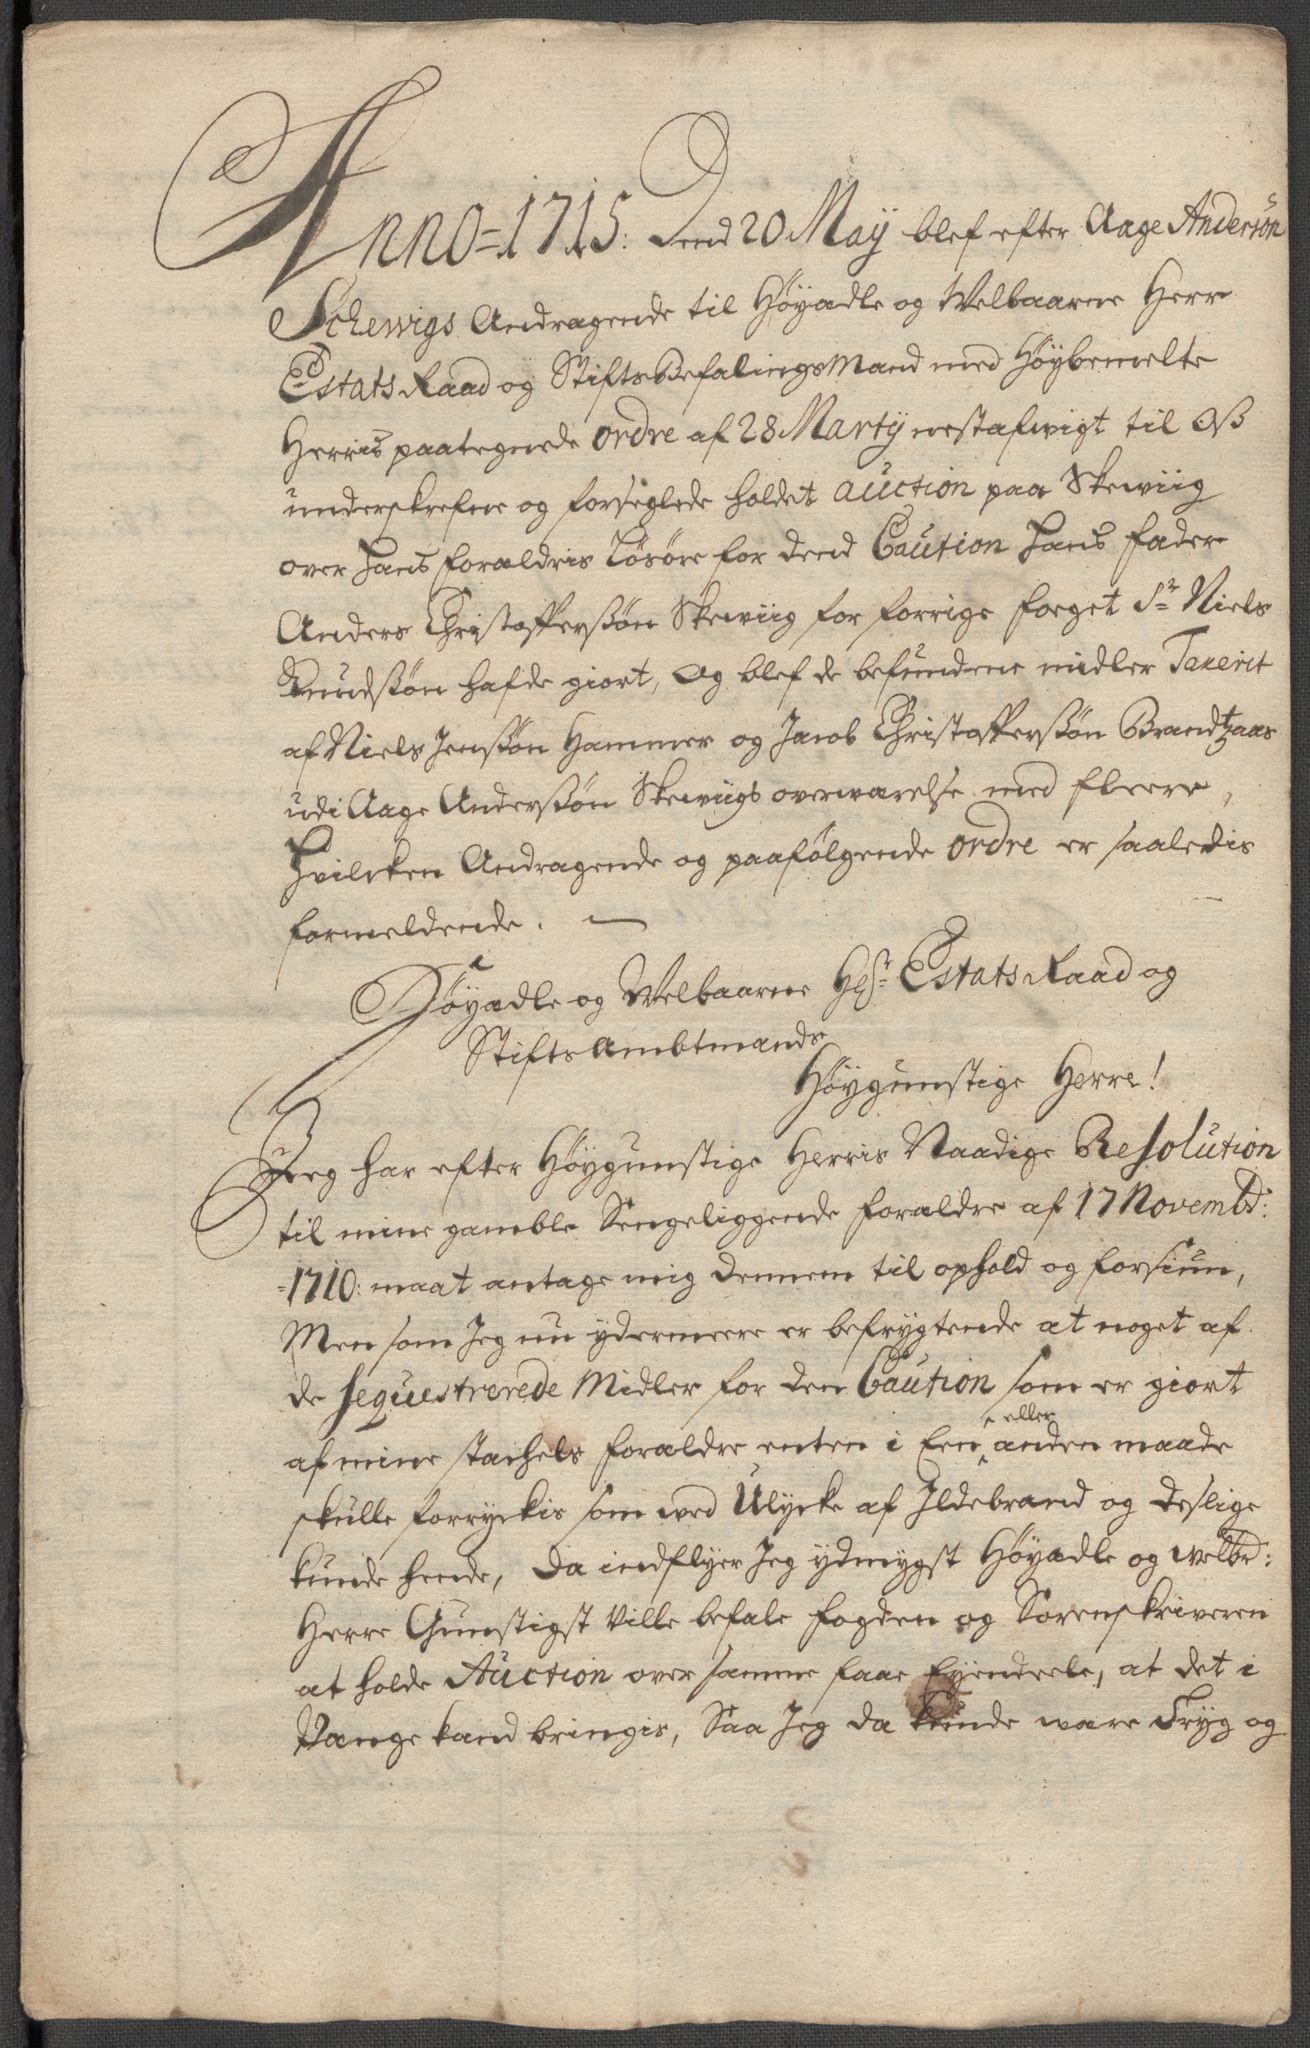 Anno = 1715: Dend 20 Maÿ blef efter Aage Andersøn
Schewigs Andragende til Høÿædle og Welbaarne Herr
Estats Raad og Stifts Befalings Mand med Høÿbemelte
Herris paategnede ordre af 28 Martÿ nestafvigt til Oß
underskrefne og forseglede holdet auction paa Skewiig
over hans forældris Løsøre for dend Caution hans fader
Anders Christofferssøn Skewiig for forrige foeget Sr Niels
Knudssøn hafde giort, Og blef de befundene midler Taxerit
af Niels Jenssøn Hammer og Jacob Christofferssøn Brandtzaas
udi Aage Anderssøn Skewiigs overwærelse med fleere,
Hvilcken Andragende og paafølgende ordre er saaledis
formeldende.
Høÿædle og Welbaarne Hr Estats Raad og
Stifts Ambtmand
Høÿgunstige Herre!
Jeg har efter Høÿgunstige Herris Naadige Resolution
til mine gamble Sengeliggende forældre af 17 Novembr:
1710: maat antage mig dennem til ophold og forsiun,
Men som Jeg nu ÿdermeere er befrÿgtende at noget af
de sequestrerede Midler for den Caution som er giort
af mine stachels forældre enten i Een eller anden maade
skulle forrÿckis som wed Ulÿcke af Jldebrand og deslige
kunde hende, da indflÿer Jeg ÿdmÿgst Høÿædle og welbr:
Herre Gunstigst Ville befale fogden og Sorenskriveren
at holde Auction over samme faae Eÿendeele, at det i
Pænge kand bringis, Saa Jeg da kunde være Trÿg og